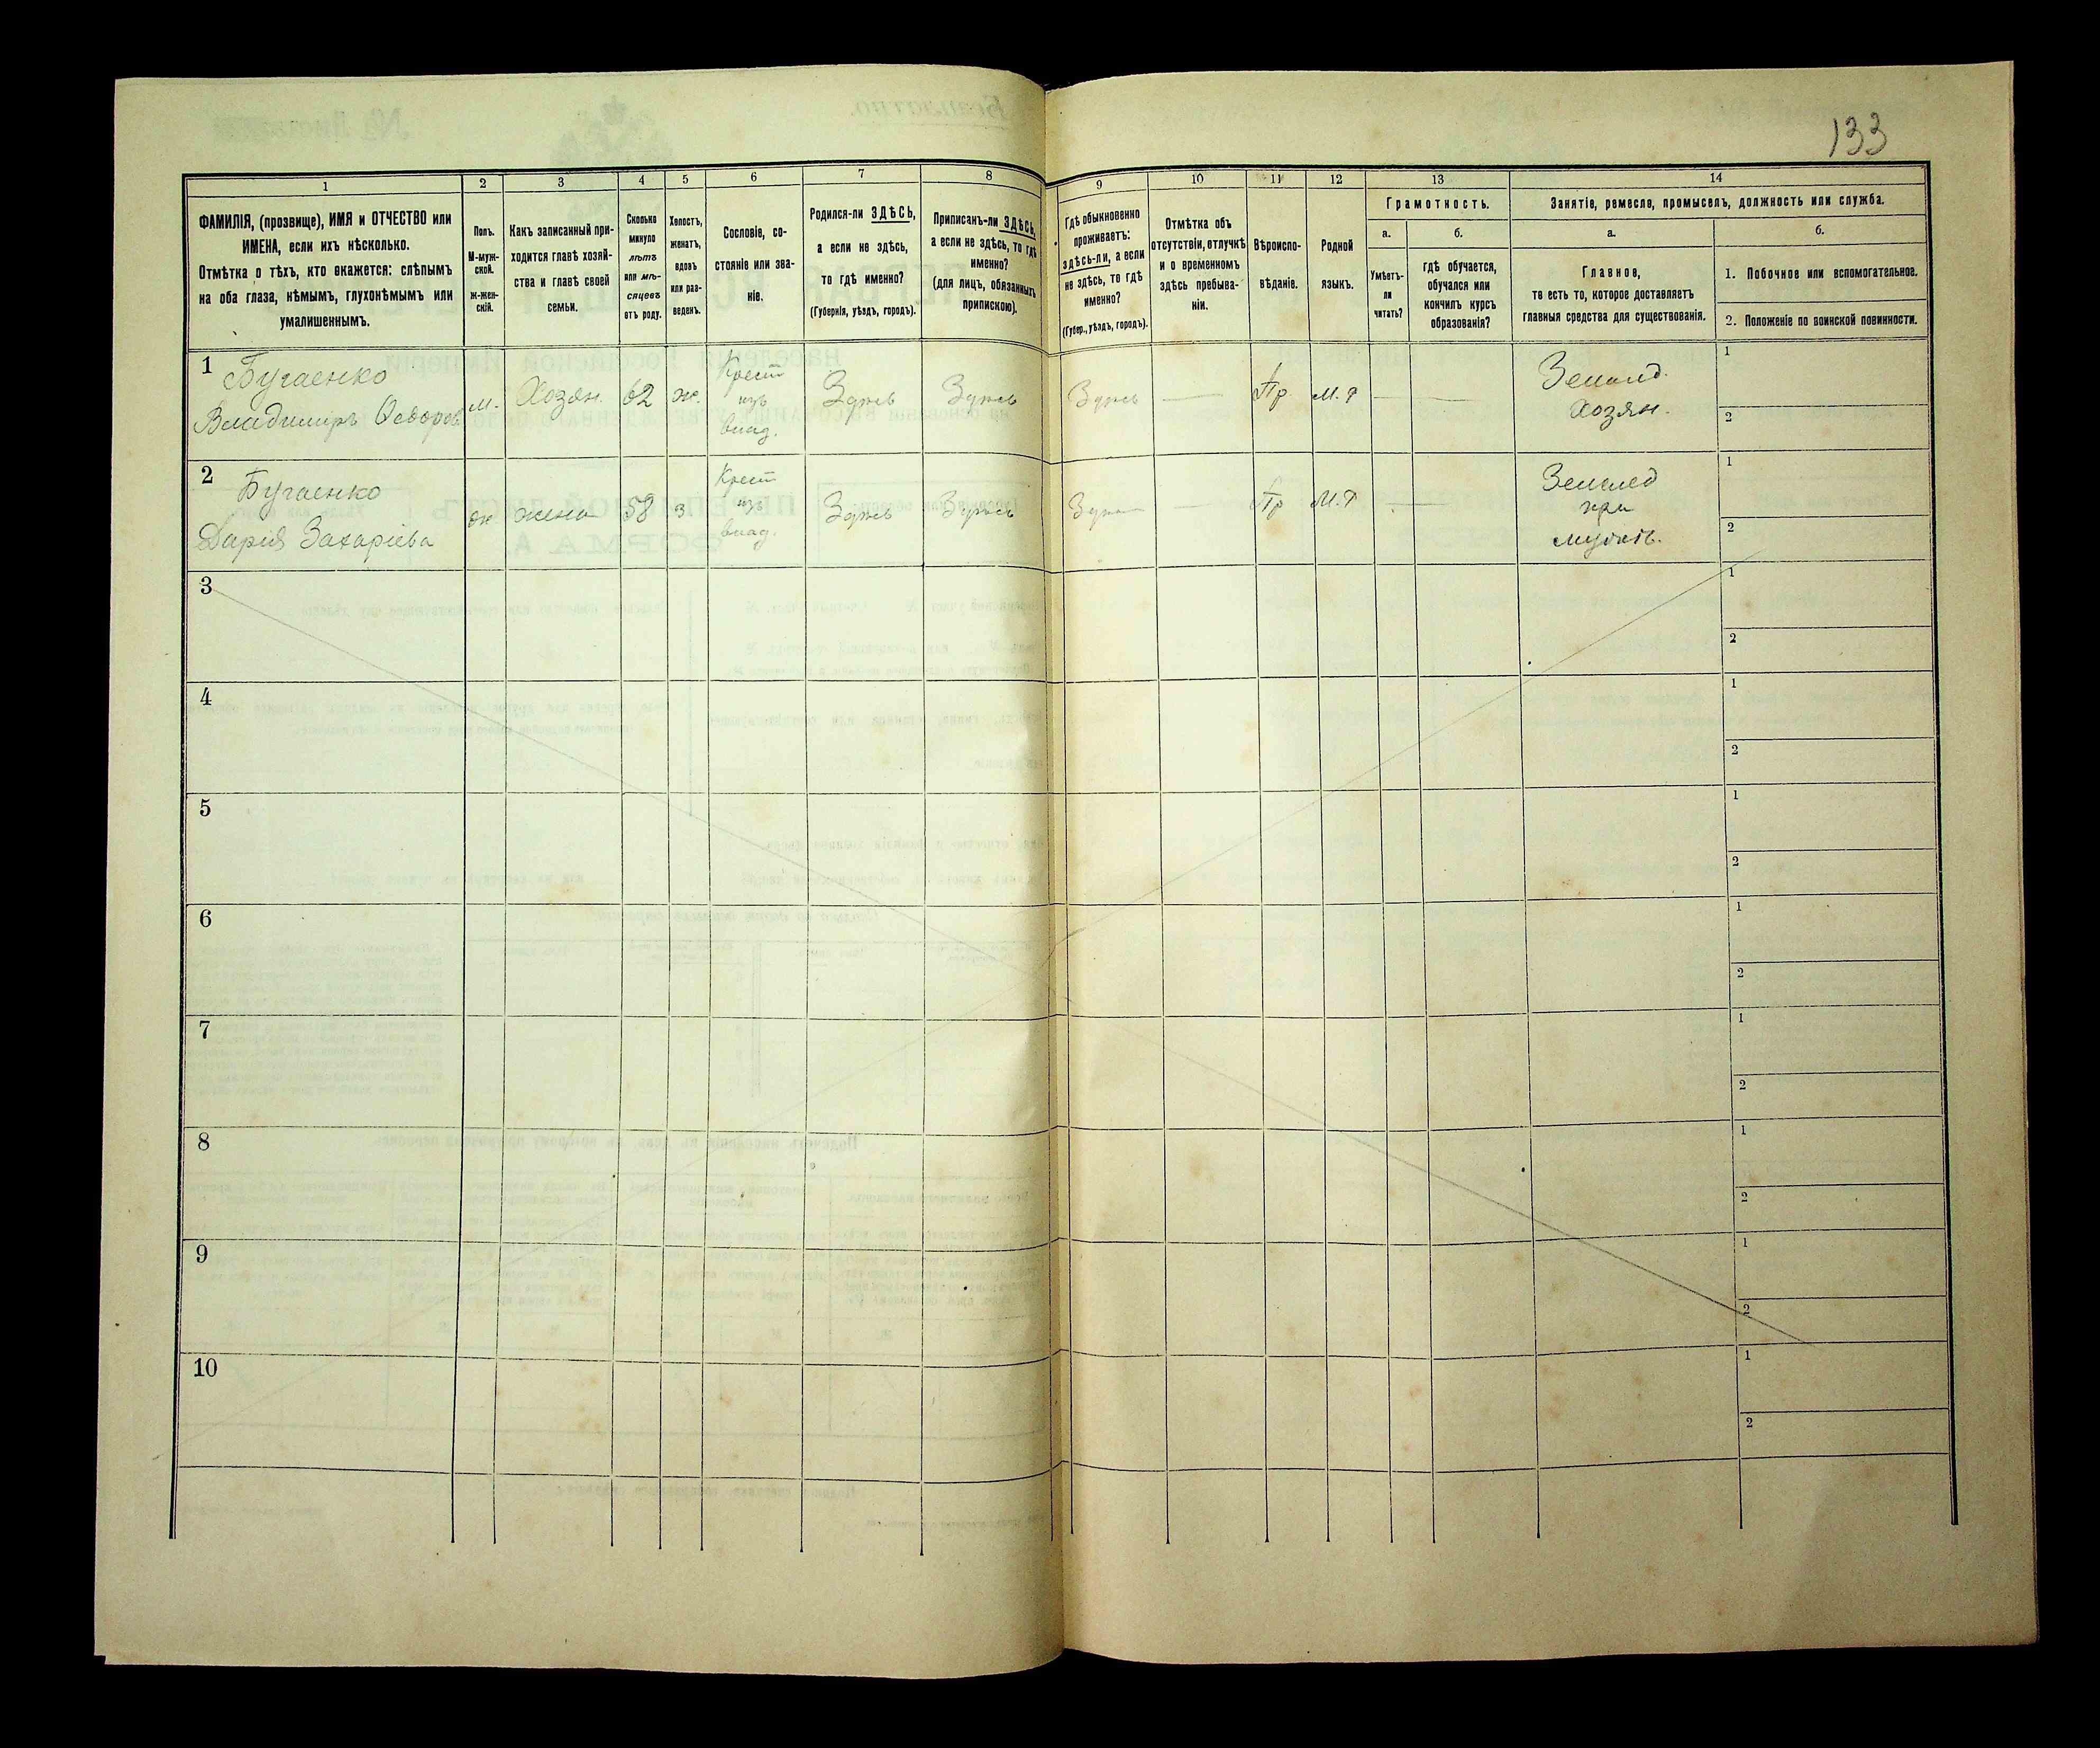 133
1
2
3
4
5
6
7
8
9
10
11
12
13
14
ФАМИЛІЯ, (прозвище), ИМЯ и ОТЧЕСТВО или
ИМЕНА, если ихъ нѣсколько.
Отмѣтка о тѣхъ, кто окажется: слѣпымъ
на оба глаза, нѣмымъ, глухонѣмымъ или
умалишеннымъ.
Полъ.
М-муж-
ской.
Ж-жен-
скій.
Какъ записанный при-
ходится главѣ хозяй-
ства и главѣ своей
семьи.
Сколько
минуло
лѣтъ
или мѣ-
сяцевъ
отъ роду.
Холостъ,
женатъ,
вдовъ
или раз-
веденъ.
Сословіе, со-
стояніе или зва-
ніе.
Родился-ли ЗДѢСЬ,
а если не здѣсь,
то гдѣ именно?
(Губернія, уѣздъ, городъ).
Приписанъ-ли ЗДѢСЬ,
а если не здѣсь, то гдѣ
именно?
(для лицъ, обязанныхъ
припискою).
Гдѣ обыкновенно
проживаетъ:
здѣсь-ли, а если
не здѣсь, то гдѣ
именно?
(Губер., уѣздъ, городъ).
Отмѣтка объ
отсутствіи, отлучкѣ
и о временномъ
здѣсь пребыва-
ніи.
Вѣроиспо-
вѣданіе.
Родной
языкъ.
Грамотность.
а.
Умѣетъ-
ли
читать?
б.
гдѣ обучается,
обучался или
кончилъ курсъ
образованія?
Занятіе, ремесло, промыселъ, должность или служба.
а.
Главное,
то есть то, которое доставляетъ
главныя средства для существованія.
б.
1. Побочное или вспомогательное.
2. Положеніе по воинской повинности.
1
Бугаенко
Владимиръ Ѳедоров
м.
Хозян.
62
ж.
Крест
изъ
влад.
Здѣсь
Здѣсь
Здѣсь
Пр
М. Р
Землед.
Хозян.
1
2
2
Бугаенко
Дарія Захаріева
ж
жена
58
З
Крест
изъ
влад.
Здѣсь
Здѣсь
Пр
М. Р
Землед
при
мужѣ.
1
2
3
1
2
4
1
2
5
1
2
6
1
2
7
1
2
8
1
2
9
1
2
10
1
2